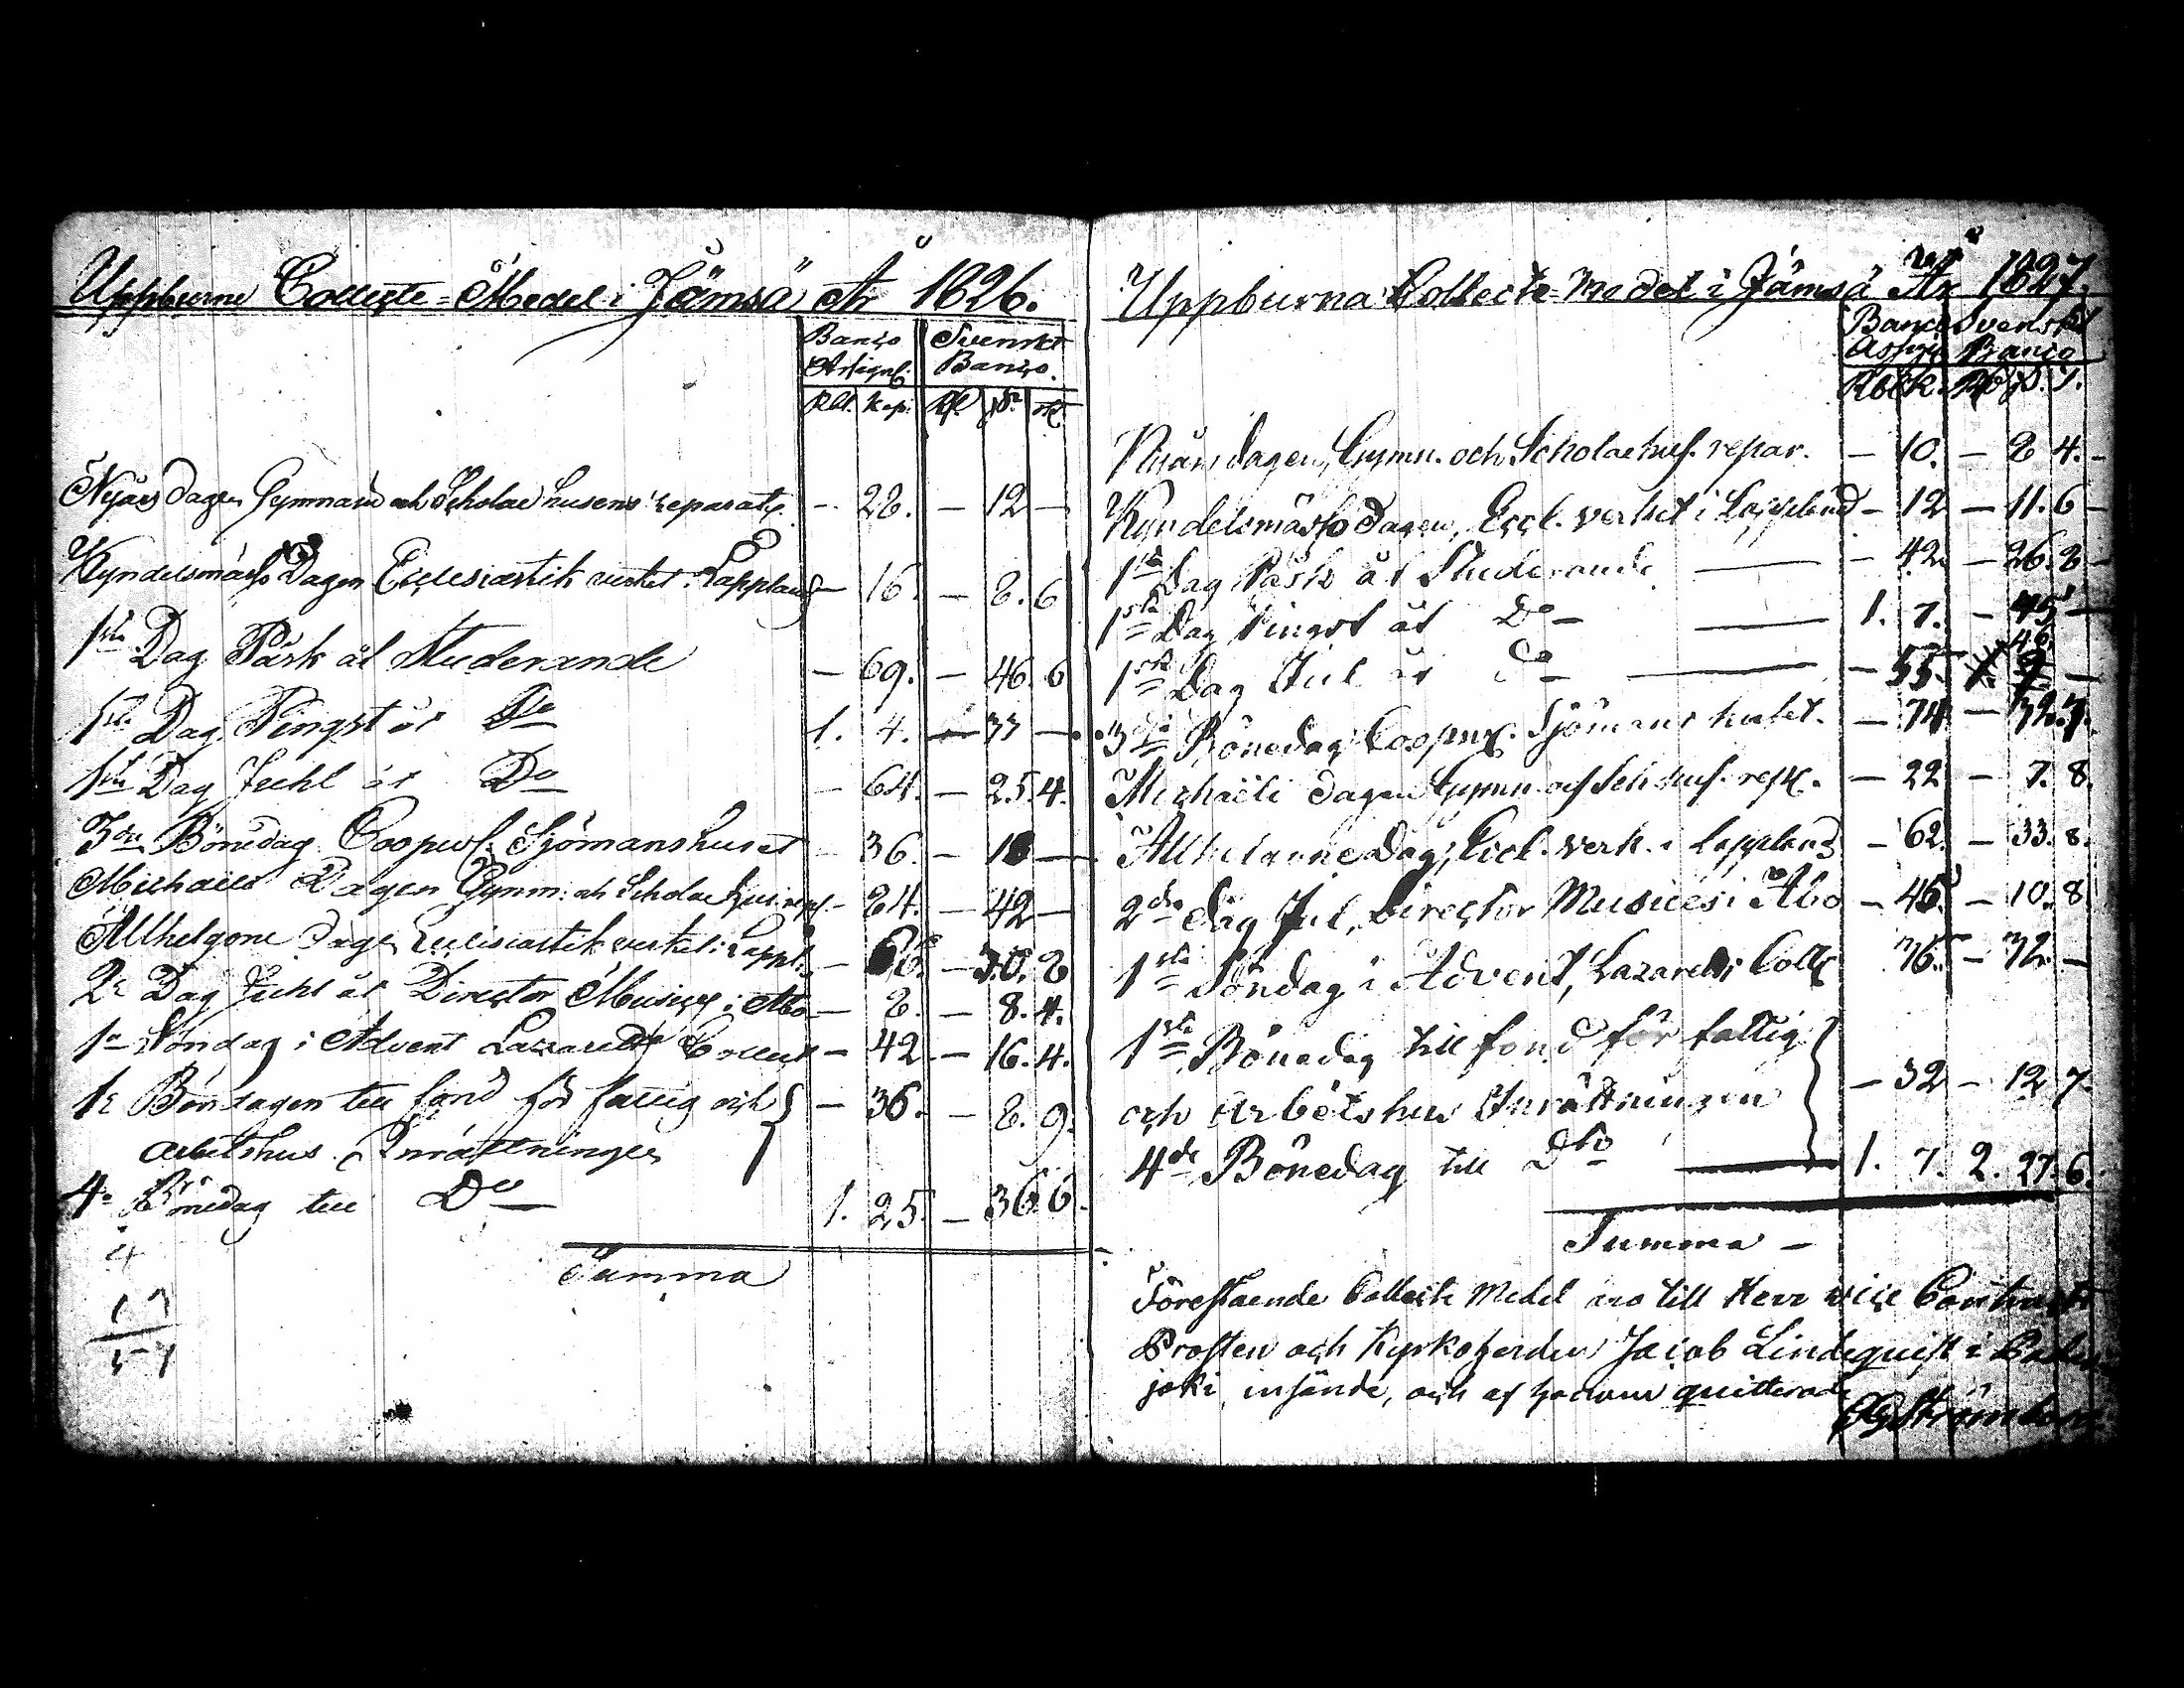 Uppburne Collecte-Medel i Jämsä År 1826.
Banco Assignat. Svenskt Banco.
Rbl. Kop. Rd. sk. rst.
Nyårsdagen Gymnasii och Scholae husens reparat. — 22. — 12 —
Kyndelsmässo Dagen Ecclesiastik verket i Lappland — 16. — 8. 6
1sta Dag Påsk åt Studerande — 69. — 46. 6
1sta Dag Pingst åt Do 1. 4. — 33 —
1sta Dag Juhl åt Do — 64. — 25. 4.
3die Bönedag Coopverd. Sjömanshuset — 36. — 18 —
Michaelis Dagen Gymn. och Scholae hus. rep. — 24. — 42 —
Allhelgone Dage Ecclesiastik verket i Lappl. — — 30. 2
2a Dag Juhl åt Director Musices i Åbo — 2. — 8. 4.
1a Söndag i Advent Lazaretts Collect — 42 — 16. 4.
1a Böndagen till fond för fattig och — 36. — 8. 9.
arbetshus Inrättningen
4e Bönedag till Do 1. 25. — 36. 6.
Summa
Uppburna Collecte-Medel i Jämsä År 1827.
Banco Assign. Svenskt Banco
Rbl. K. Rd. s. r.
Nyårsdagen, Gymn. och Scholae hus. repar. — 10. — 2 4. —
Kyndelsmässo Dagen, Eccl. verket i Lappland — 12 — 11. 6 —
1sta Dag Påsk åt Studerande — 42 — 26. 2 —
1sta Dag Pingst åt Do — 1. 7. — 45 —
1sta Dag Jul åt Do — 55. 46. —
3die Bönedag Coopverd. Sjömans huset. — 74 — 32. 7.
Michaëli dagen Gymn. och Sch. hus. rep. — 22 — 7. 8.
Allhelgone Dag, Eccl. verk. i Lappland — 62. — 33. 8.
2dra dag Jul, Director Musices i Åbo — 45. — 10. 8
1sta Söndag i Advent, Lazaretts Coll. 76. — 32 —
1sta Bönedag till fond för fattig
och Arbetshus Inrättningen — 32 — 12 7.
4de Bönedag till Dto — 1. 7. 2. 27. 6.
Summa —
Förestående Collecte Medel äro till Herr vice Contracts
Prosten och Kyrkoherden Jacob Lindequist i
joki insände, och af honom quitterade